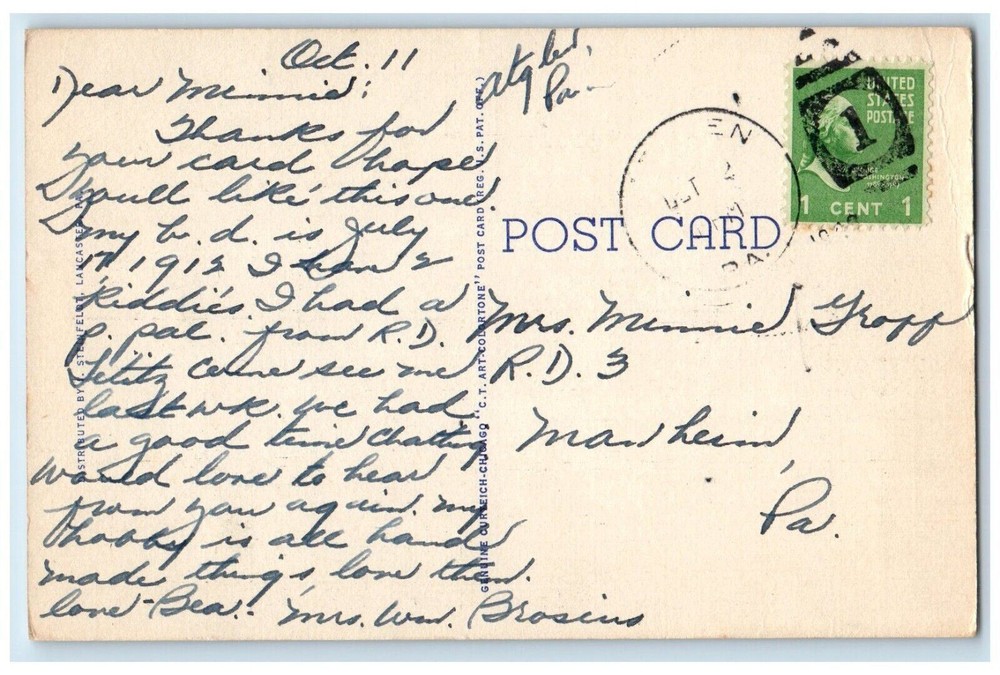 Oct. 11
Dear Minnie:
Thanks for
your card hope
you'll like this one.
my b.d. is July
17 1912 I have 2
kiddies. I had a
p. pal. from R.D.
Lititz come see me
last wk. we had
a good time chatting
would love to hear
from you again. my
hobby is all hand
made things, love them.
love - Bea. - Mrs. Wm. Brosius
Atglen,
Pa.
POST CARD
Mrs. Minnie Groff
R.D. 3
Manheim,
Pa.
UNITED
STATES
POSTAGE
1
1 CENT 1
EN
PA.
DISTRIBUTED BY I. STEINFELDT, LANCASTER, PA.
GENUINE CURTEICH-CHICAGO "C.T. ART-COLORTONE" POST CARD (REG. U.S. PAT. OFF.)